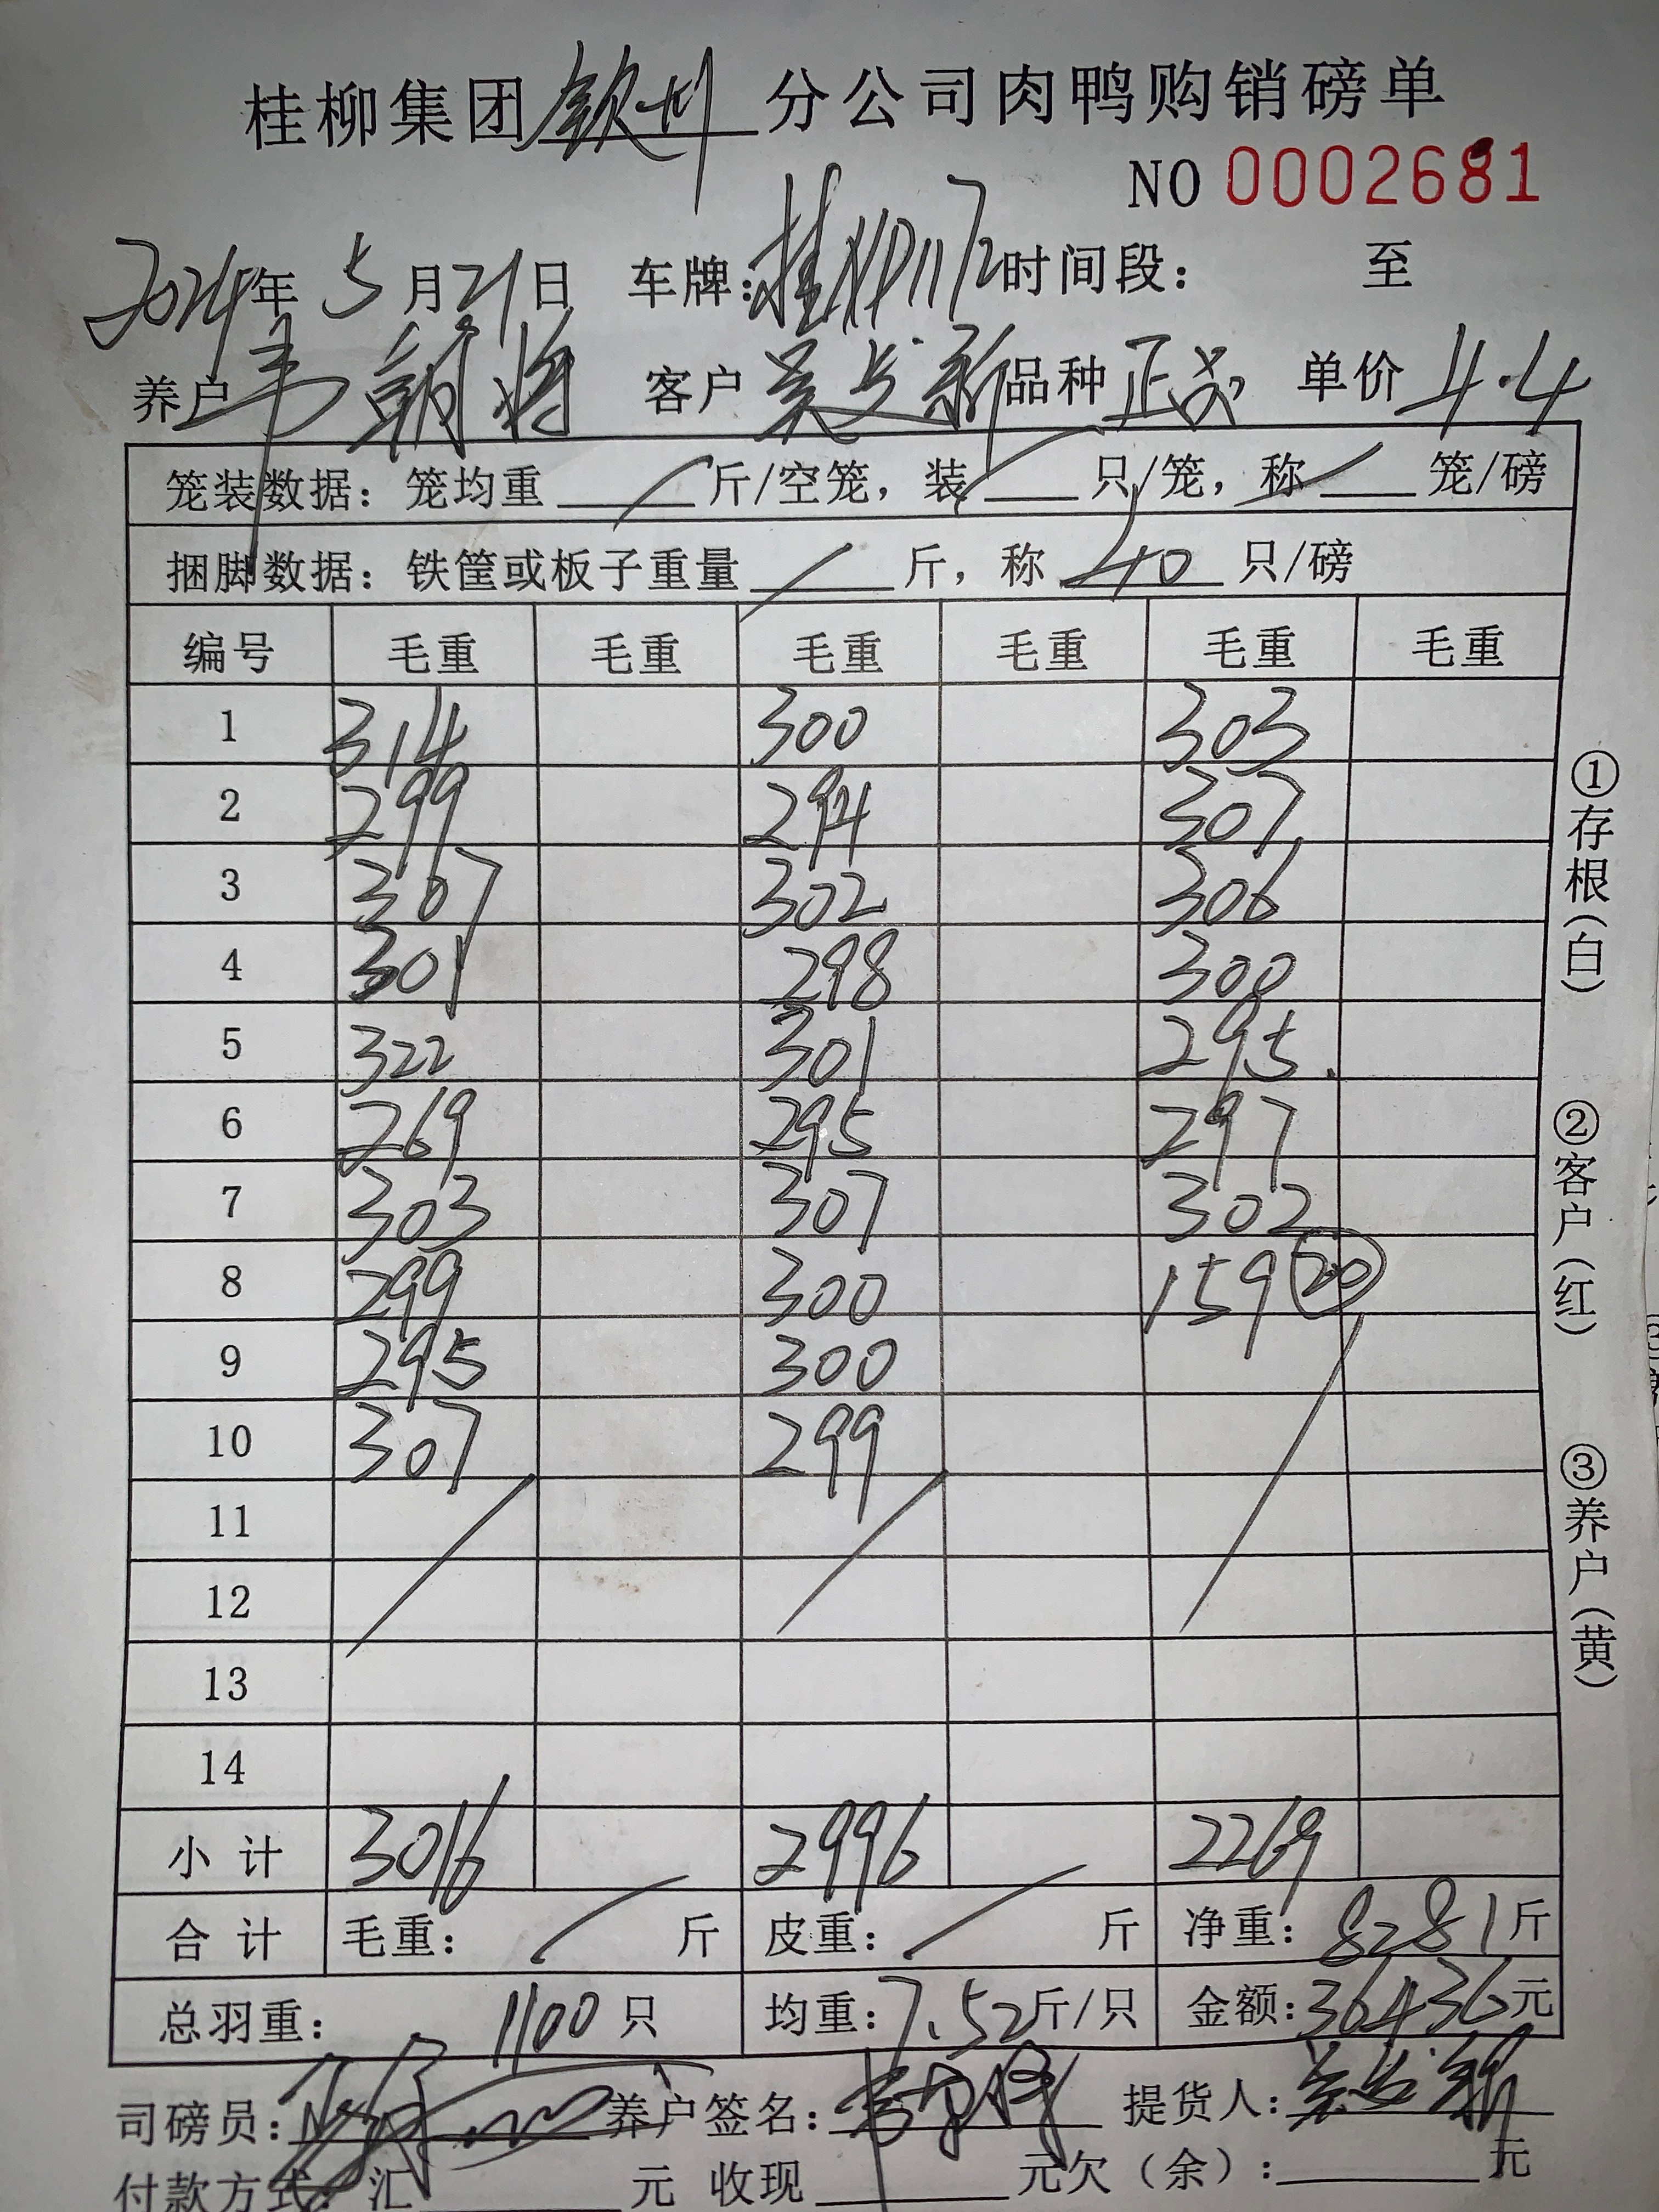 桂柳集团钦州分公司肉鸭购销磅单
NO 0002681
2024年 5月21日 车牌:桂 时间段: 至
养户韦朝将 客户 吴 新 品种 正 单价 4.4
笼装数据: 笼均重 / 斤/空笼, 装 / 只/笼, 称 / 笼/磅
捆脚数据: 铁筐或板子重量 / 斤, 称 40 只/磅
编号 毛重 毛重 毛重 毛重 毛重 毛重
1 314 300 303
2 299 294 307
3 307 302 306
4 301 298 300
5 322 301 295.
6 269 295 297
7 303 307 302
8 299 300 159 20
9 295 300
10 307 299
11
12
13
14
小计 3016 2996 2269
合计 毛重: / 斤 皮重: / 斤 净重: 8281斤
总羽重: 1100只 均重:7.52斤/只 金额:36436元
司磅员: 养户签名: 提货人:
付款方式: 汇 元 收现 元欠(余): 元
①存根(白)
②客户(红)
③养户(黄)